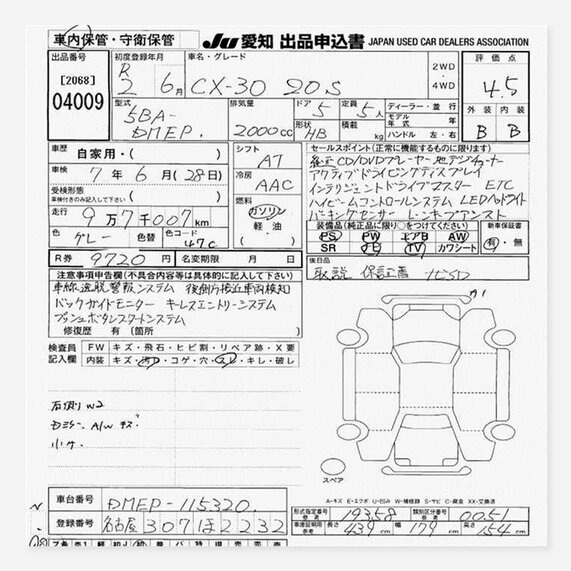 車内保管・守衛保管
JU 愛知 出品申込書 JAPAN USED CAR DEALERS ASSOCIATION
出品番号 [2068] 04009
初度登録年月 R 2 6月
車名・グレード CX-30 20S
2WD ・ 4WD
評価点 4.5
型式 5BA-DMEP.
排気量 2000cc
ドア 5
定員 5人
形状 HB
積載 kg
ディーラー・並行
モデル年式 年
ハンドル 左・右
外装 B
内装 B
車歴 自家用・( )
車検 7年 6月 (28日)
受検形態 車検付きのみ記入して下さい ( )
走行 9万7千007km
色 グレー
色替
色コード 47C
シフト AT
冷房 AAC
燃料 ガソリン 軽・油 ( )
セールスポイント(正常に機能するものに限ります)
純正CD/DVDプレーヤー 地デジチューナー
アクティブドライビングディスプレイ
インテリジェントドライブマスター ETC
ハイビームコントロールシステム LEDヘッドライト
パーキングセンサー レーンキープアシスト
装備品(純正品に限り○をつけてください)
PS PW エアB AW
SR TV カワシート
新車保証書 有・無
R券 9720円
名変期限 月 日
後日品
取説 保証書
注意事項申告欄(不具合内容等は具体的に記入して下さい)
車線逸脱警報システム 後側方接近車両検知
バックガイドモニター キーレスエントリーシステム
プッシュボタンスタートシステム
修復歴 有 (箇所 )
検査員記入欄
FW キズ・飛石・ヒビ割・リペア跡・X要
内装 キズ・汚レ・コゲ・穴・スレ・キレ・破レ
右側り W2
A/W キズ
小キズ
A1
スペア
A-キズ E-エクボ U-凹み W-補修跡 S-サビ C-腐食 XX-交換済
車台番号 DMEP-115320
登録番号 名古屋 307 ほ 2232
形式指定番号 参考 19358
類別区分番号 参考 0051
車庫証明用 参考 長さ 439cm 幅 179cm 高さ 154cm